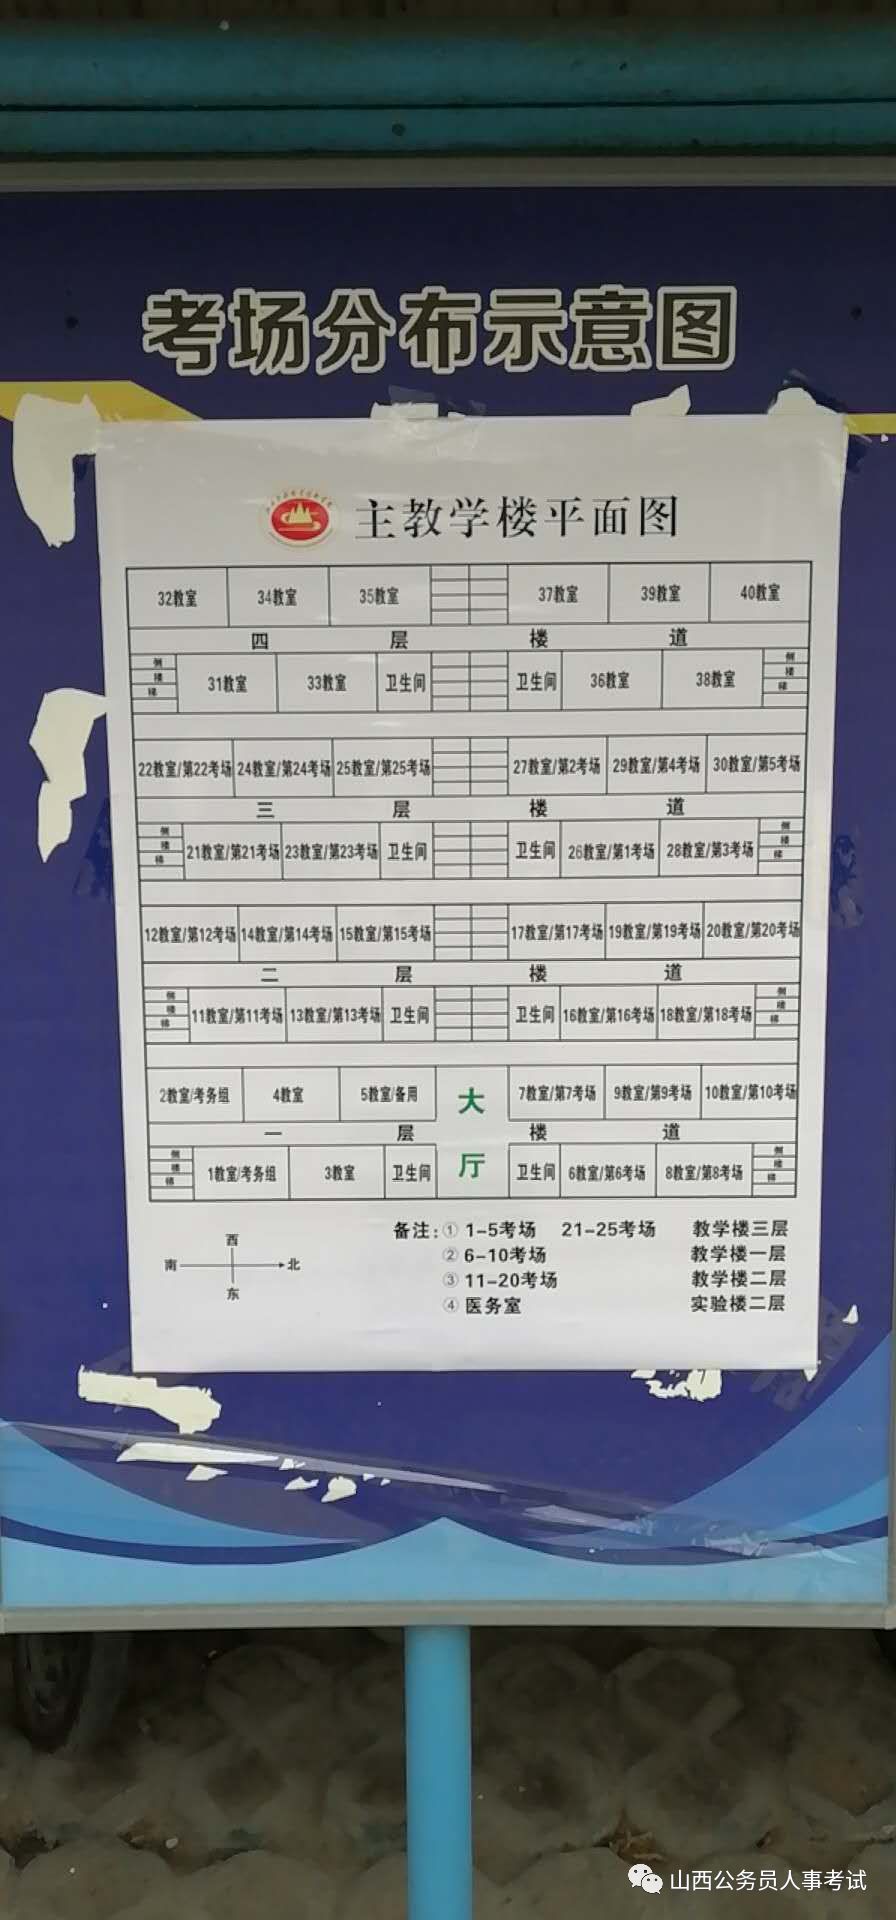 考场分布示意图
主教学楼平面图
32教室 34教室 35教室 37教室 39教室 40教室
四层楼道
侧楼梯 31教室 33教室 卫生间 卫生间 36教室 38教室 侧楼梯
22教室/第22考场 24教室/第24考场 25教室/第25考场 27教室/第2考场 29教室/第4考场 30教室/第5考场
三层楼道
侧楼梯 21教室/第21考场 23教室/第23考场 卫生间 卫生间 26教室/第1考场 28教室/第3考场 侧楼梯
12教室/第12考场 14教室/第14考场 15教室/第15考场 17教室/第17考场 19教室/第19考场 20教室/第20考场
二层楼道
侧楼梯 11教室/第11考场 13教室/第13考场 卫生间 卫生间 16教室/第16考场 18教室/第18考场 侧楼梯
2教室/考务组 4教室 5教室/备用 大 7教室/第7考场 9教室/第9考场 10教室/第10考场
一层楼道
侧楼梯 1教室/考务组 3教室 卫生间 厅 卫生间 6教室/第6考场 8教室/第8考场 侧楼梯
西
南 北
东
备注:① 1-5考场 21-25考场 教学楼三层
② 6-10考场 教学楼一层
③ 11-20考场 教学楼二层
④ 医务室 实验楼二层
山西公务员人事考试